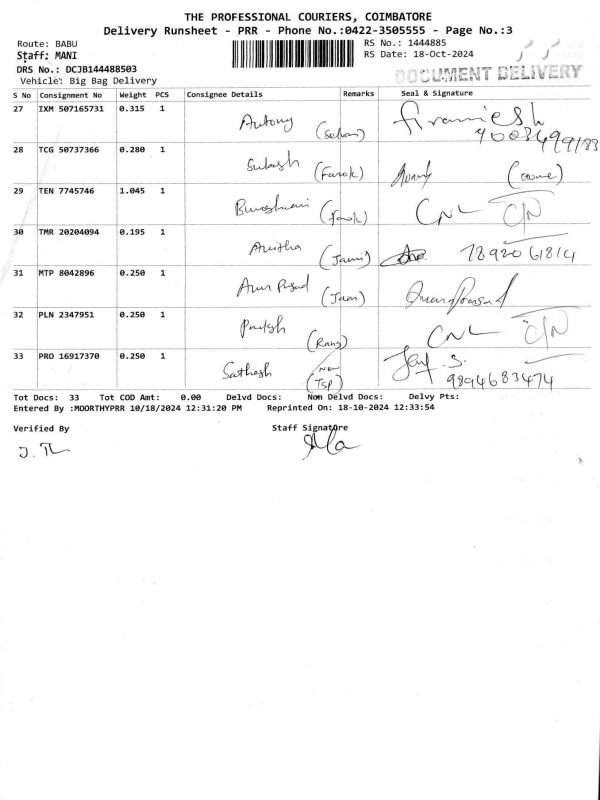 THE PROFESSIONAL COURIERS, COIMBATORE
Delivery Runsheet - PRR - Phone No.:0422-3505555 - Page No.:3
Route: BABU RS No.: 1444885
Staff: MANI RS Date: 18-Oct-2024
DRS No.: DCJB144488503
DOCUMENT DELIVERY
Vehicle: Big Bag Delivery
S No Consignment No Weight PCS Consignee Details Remarks Seal & Signature
27 IXM 507165731 0.315 1 Antony (Selvan)
28 TCG 50737366 0.280 1 Subash (Farok)
29 TEN 7745746 1.045 1 (Farok) CNL C/N
30 TMR 20204094 0.195 1 Anitha (Jami)
31 MTP 8042896 0.250 1 Arun Prasad (Jam)
32 PLN 2347951 0.250 1 (Rang) CNL C/N
33 PRO 16917370 0.250 1 Sathesh (New TSP) 9894683474
Tot Docs: 33 Tot COD Amt: 0.00 Delvd Docs: Non Delvd Docs: Delvy Pts:
Entered By :MOORTHYPRR 10/18/2024 12:31:20 PM Reprinted On: 18-10-2024 12:33:54
Verified By Staff Signatore